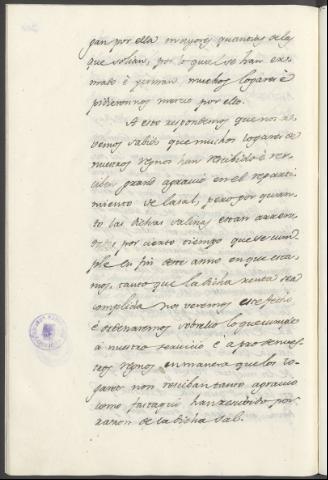 gan por ella mayores quantias de la
que solian, por lo que se han
e yerman muchos logares e
pidieronnos merced por ello.
A esto respondemos que nos a-
vemos sabido que muchos logares de
nuestros regnos han recibido e res-
ciben grand agravio en el reparti-
miento de la sal, pero por quan-
to las dichas salinas estan arrenda-
das, por cierto tiempo que se cum-
ple en fin deste año en que esta-
mos, tanto que la dicha renta sea
complida nos veremos este fecho
e ordenaremos sobrello lo que cumple
a nuestro servicio e a pro de nues-
tros regnos en manera que los lo-
gares non reciban tanto agravio
como fastaqui han rendido por
razon de la dicha sal.